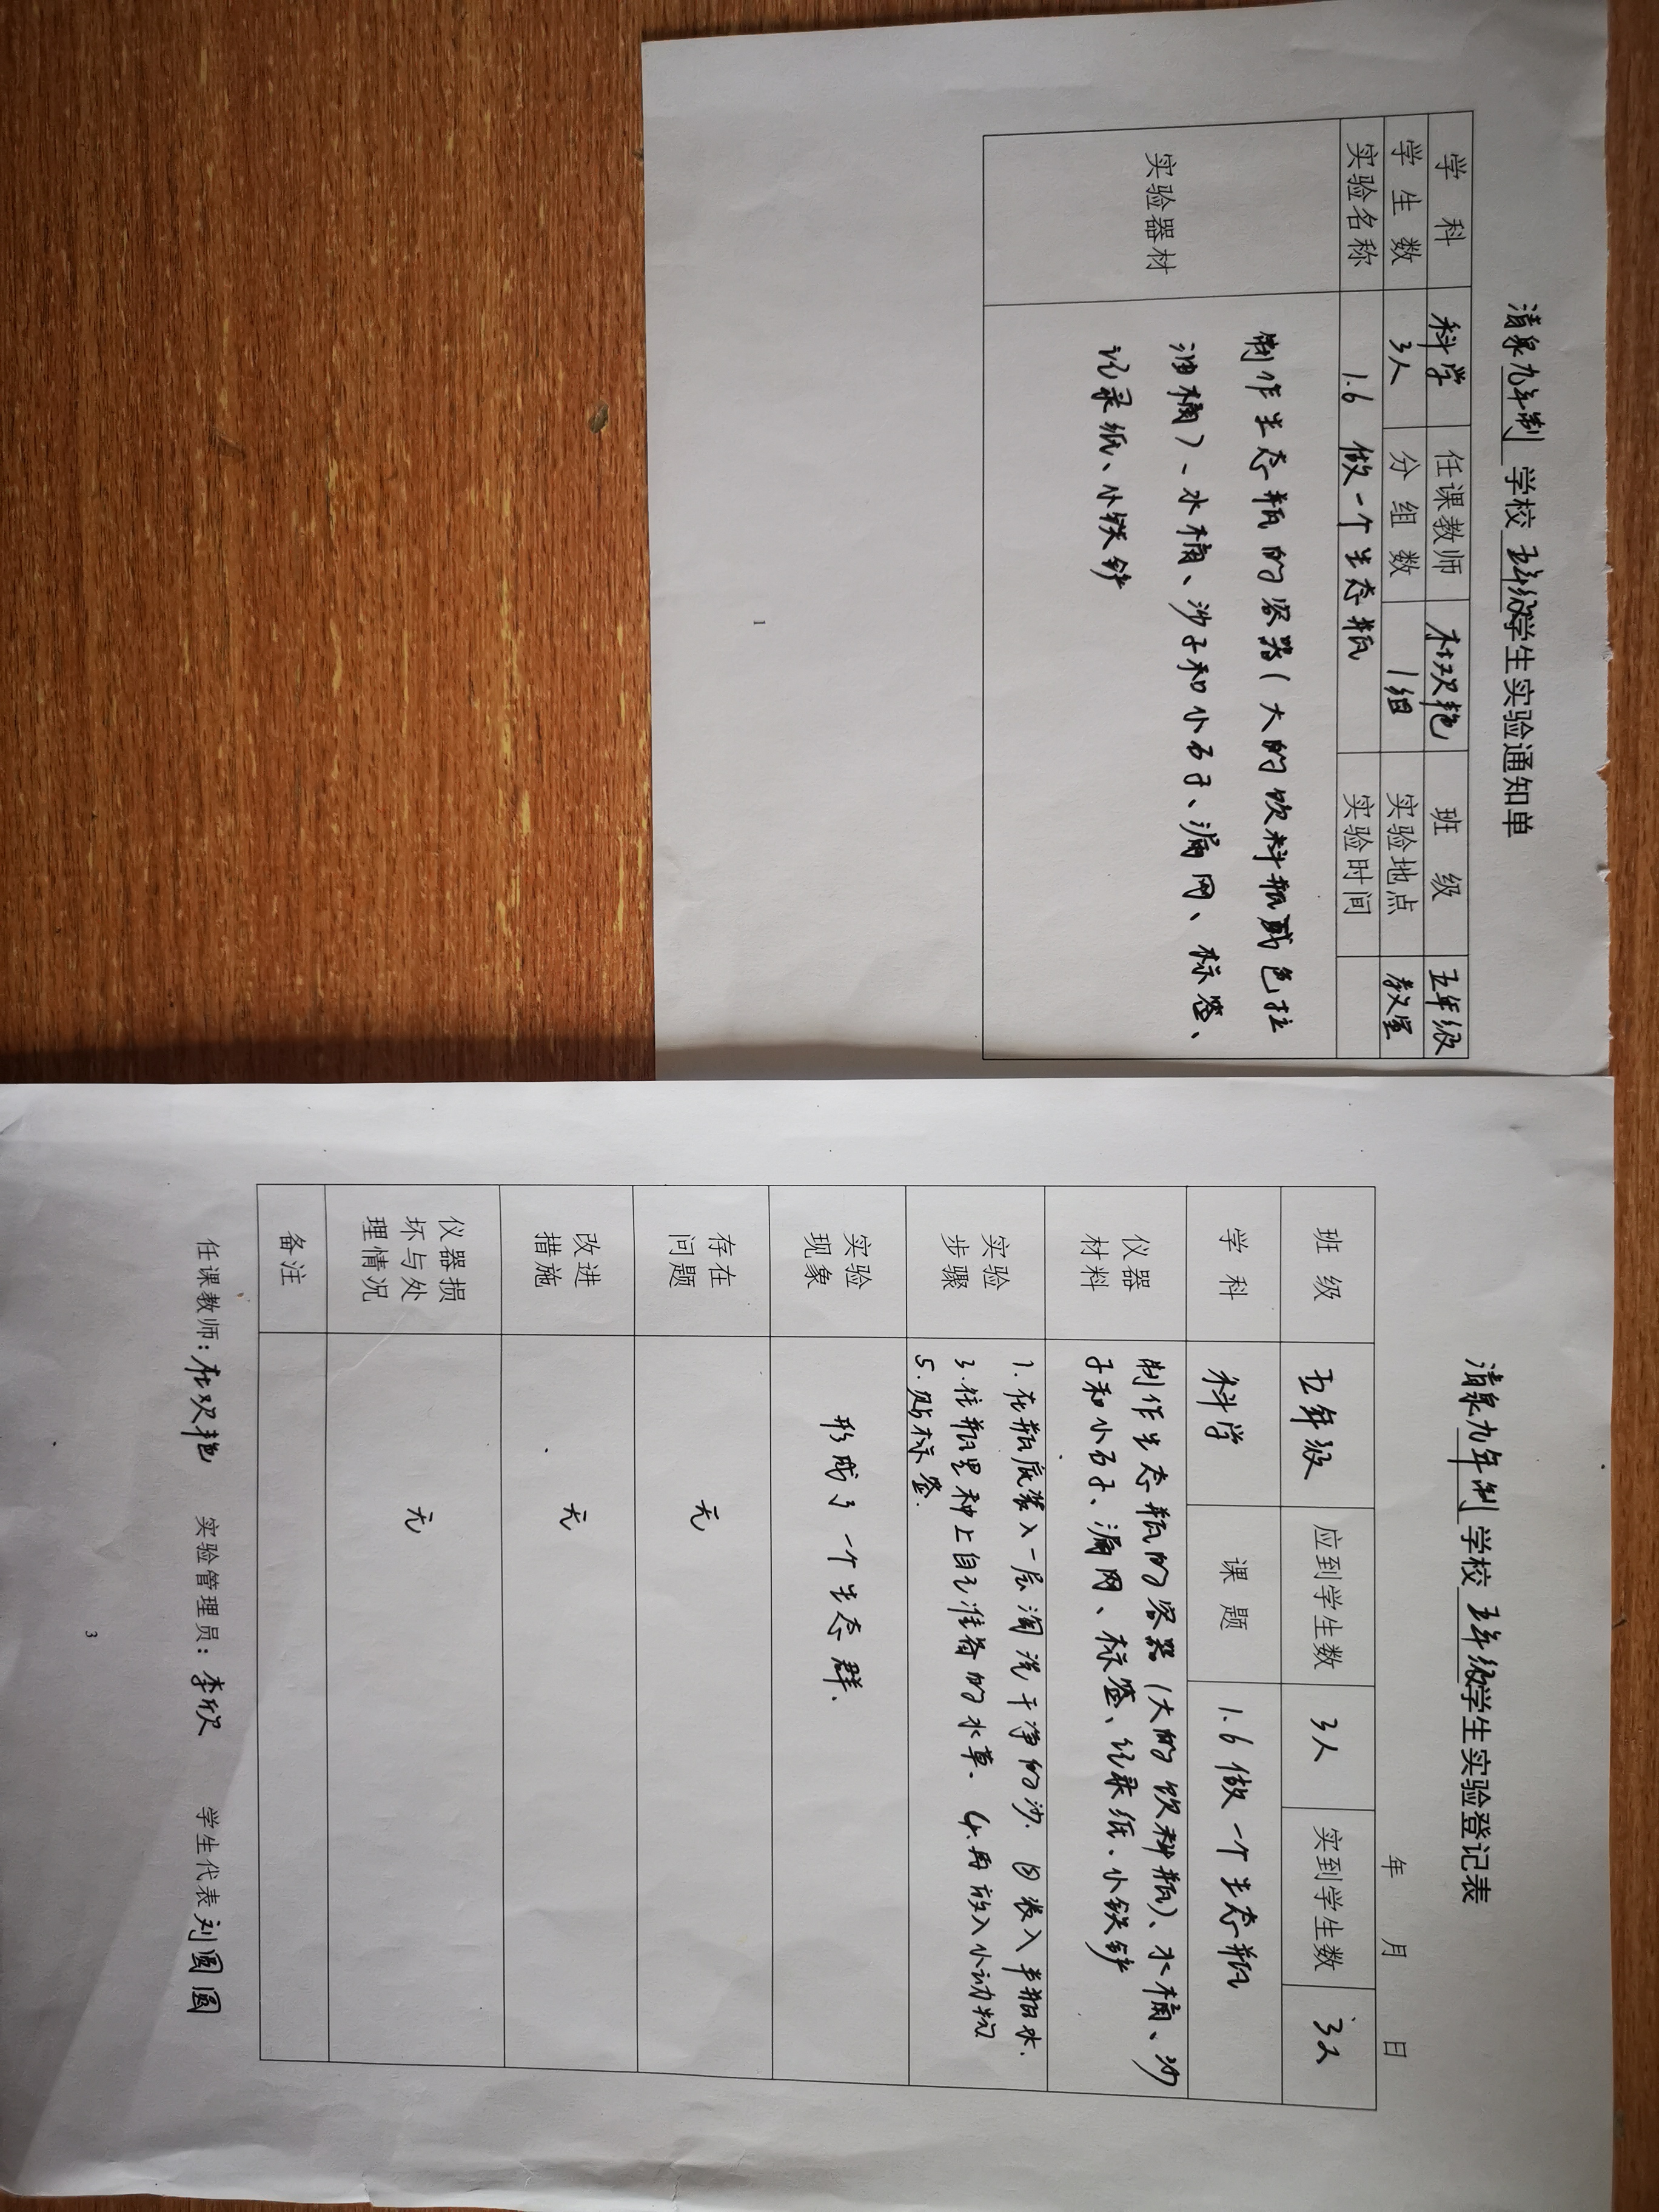 清泉九年制学校五年级学生实验通知单
学科 科学 任课教师 杜双艳 班级 五年级
学生数 3人 分组数 1组 实验地点 教室
实验名称 1.6 做一个生态瓶 实验时间
实验器材
制作生态瓶的容器(大的饮料瓶或色拉
油桶)、水桶、沙子和小石子、漏网、标签、
记录纸、小铁铲
1
清泉九年制学校五年级学生实验登记表
年 月 日
班级 五年级 应到学生数 3人 实到学生数 3人
学科 科学 课题 1.6 做一个生态瓶
仪器材料
制作生态瓶的容器(大的饮料瓶)、水桶、沙
子和小石子、漏网、标签、记录纸、小铁铲
实验步骤
1.在瓶底装入一层淘洗干净的沙. ②装入半瓶水.
3.往瓶里种上自己准备的水草. 4.再放入小动物
5.贴标签.
实验现象 形成了一个生态群.
存在问题 无
改进措施 无
仪器损坏与处理情况 无
备注
任课教师:杜双艳 实验管理员:李欣 学生代表 刘圆圆
3